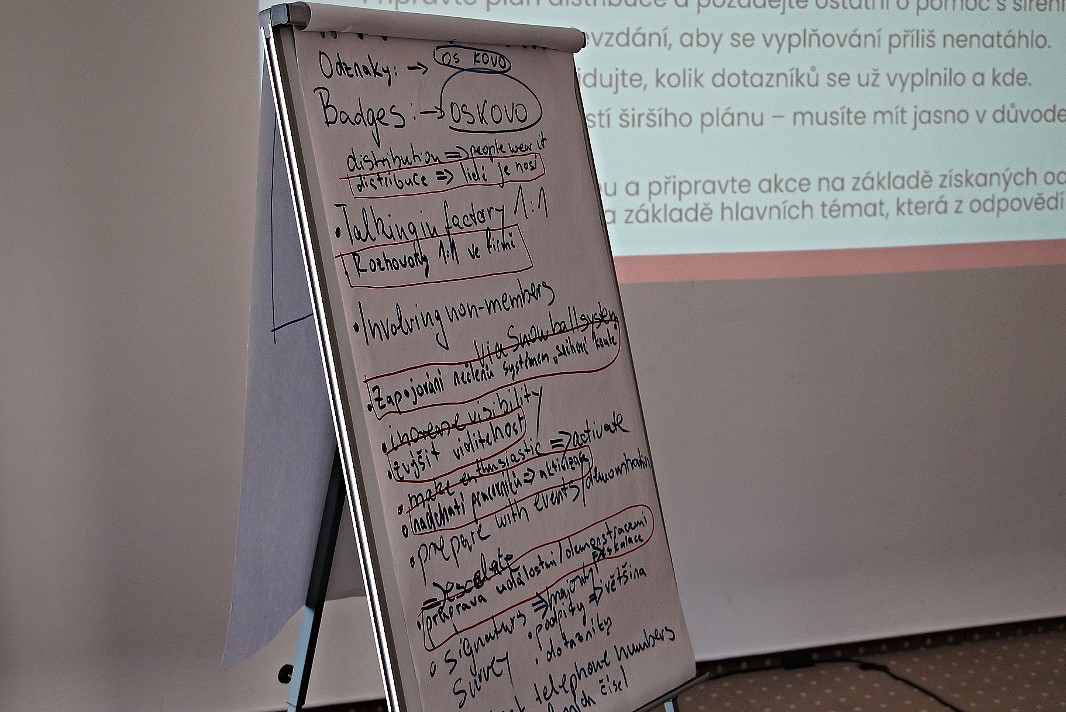 Připravte plán distribuce a požádejte ostatní o pomoc s šíření
evzdání, aby se vyplňování příliš nenatáhlo.
dujte, kolik dotazníků se už vyplnilo a kde.
stí širšího plánu – musíte mít jasno v důvode
u a připravte akce na základě získaných od
a základě hlavních témat, která z odpovědí
Odznaky: → OS KOVO
Badges: → OS KOVO
distribution => people wear it
distribuce => lidi je nosí
• Talking in factory 1:1
Rozhovory 1:1 ve firmě
• Involving non-members
via Snowball system
• Zapojování nečlenů systémem „sněhové koule"
• increase visibility
• zvýšit viditelnost
• make enthusiastic => activate
nadchnout pracovníky => aktivizace
• prepare with events/demonstration
=> escalate
• příprava událostmi/demonstracemi
eskalace
signatures => majority
• podpisy => většina
Survey • dotazníky
telephone numbers
čísel